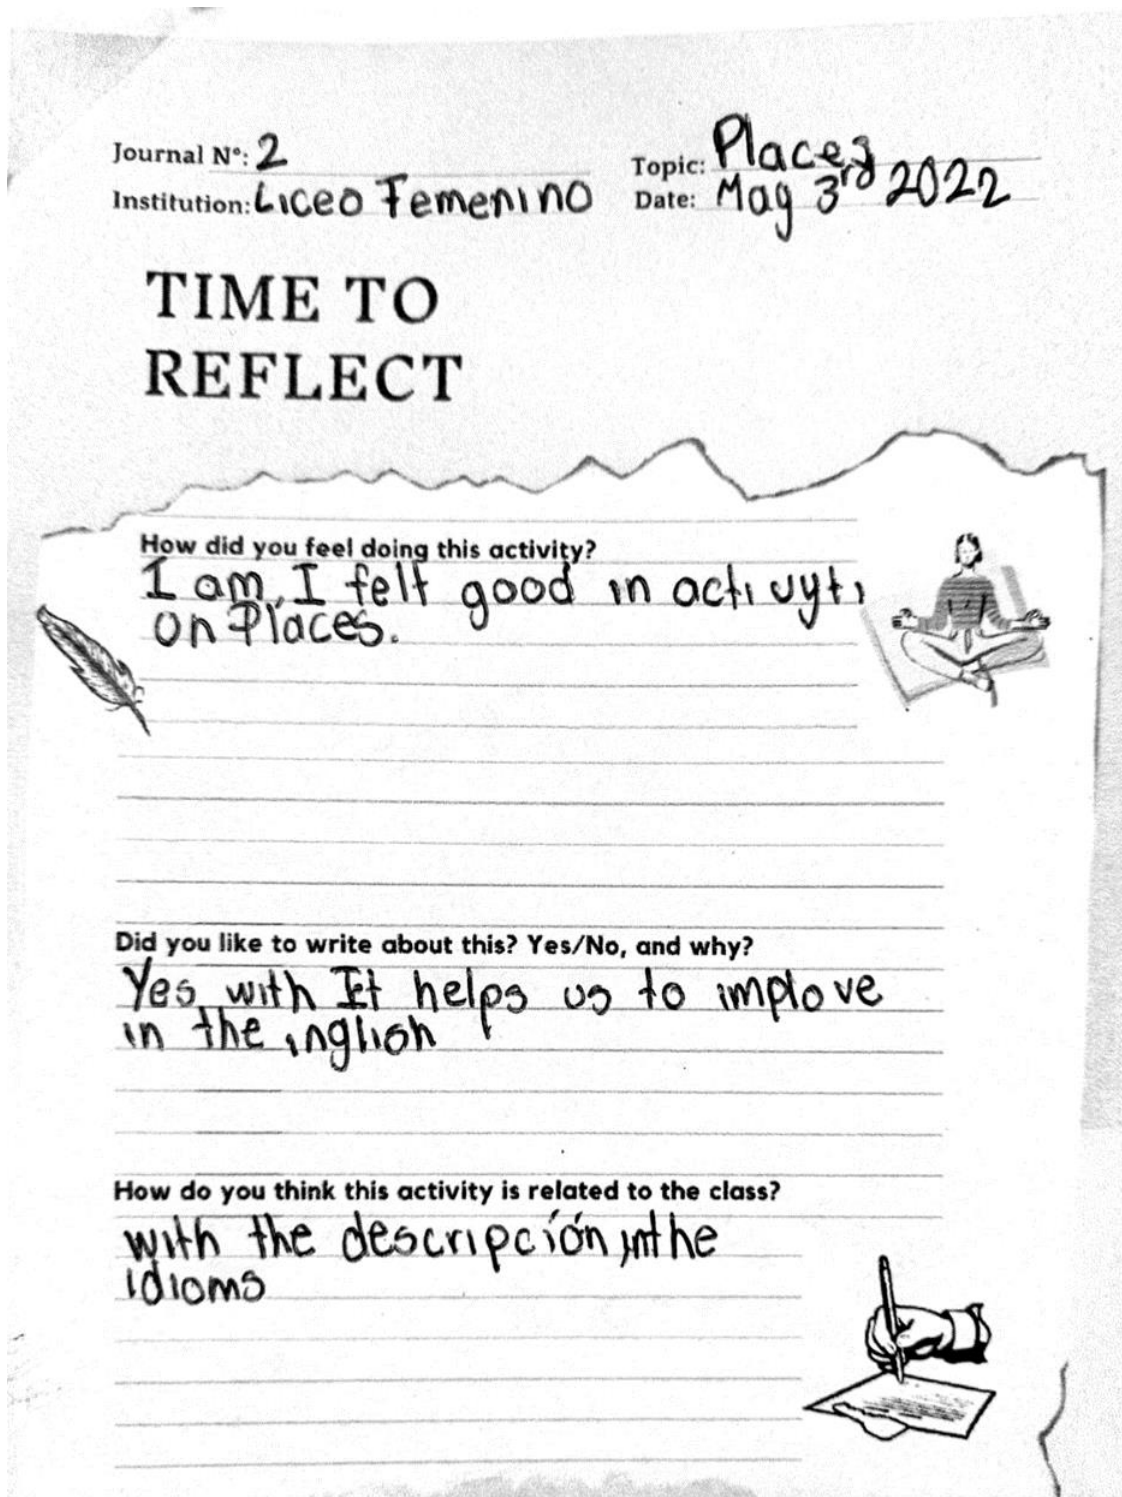 Journal N°: 2
Topic: Places
Institution: Liceo Femenino
Date: May 3rd 2022
TIME TO
REFLECT
How did you feel doing this activity?
I am, I felt good in acti vyti
on Places.
Did you like to write about this? Yes/No, and why?
Yes, with It helps us to implove
in the inglish
How do you think this activity is related to the class?
with the descripción, in the
idioms